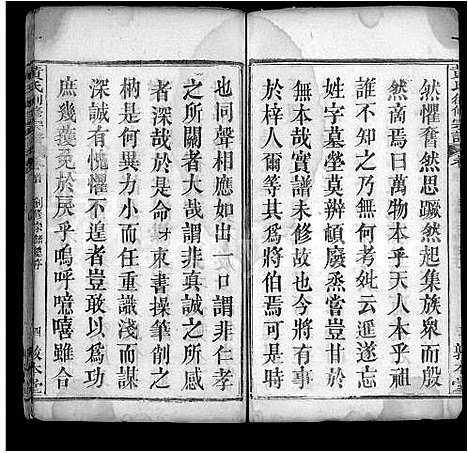 然懼奮然思蹶然起集族衆而殷
殷然告曰萬物本乎天人本乎祖
誰不知之乃無何考妣云匯遂忘
姓字墓塋莫辨頓廢烝嘗豈甘
於梓人爾等其爲何氏
裔非本修故也今將有事
也同聲相應如一口謂非仁孝
之所關者大哉謂非真誠之所感
者深哉於是命才東書操筆削之
何異力小而任重識淺而
深誠有愧懼不遑者豈敢以為功
庶幾獲免於戾乎嗚呼噫嘻雖合
黃氏續修宗譜
四
敦本堂